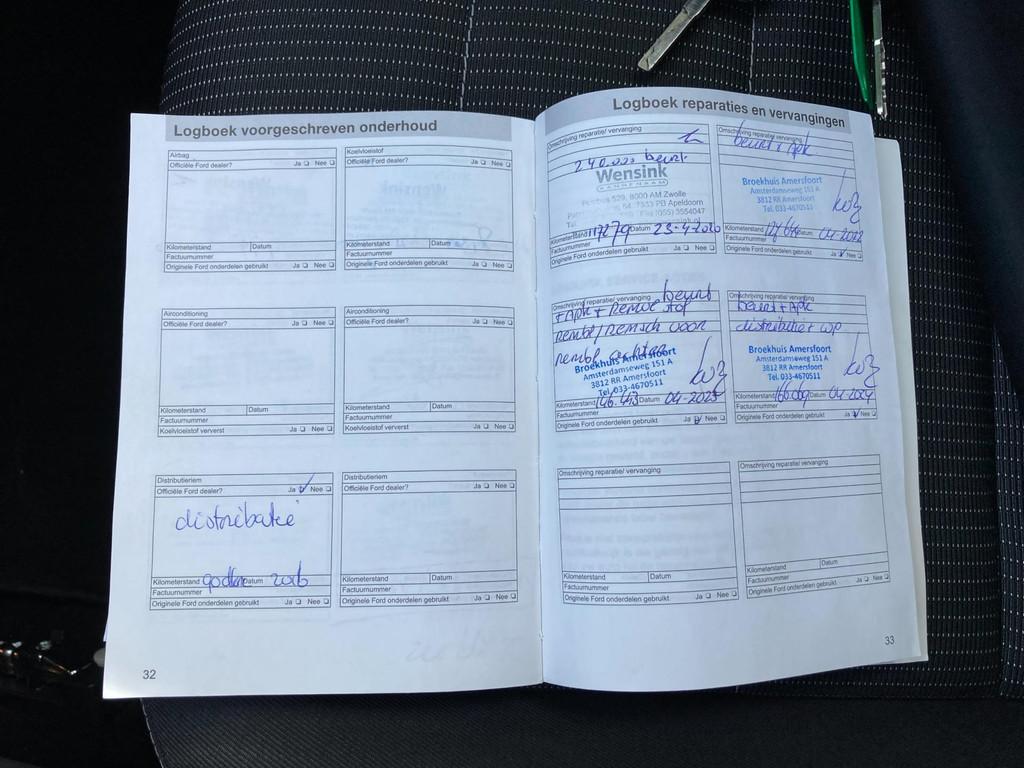 Logboek voorgeschreven onderhoud
Airbag
Officiële Ford dealer? Ja Nee
Kilometerstand Datum
Factuurnummer
Originele Ford onderdelen gebruikt Ja Nee
Koelvloeistof
Officiële Ford dealer? Ja Nee
Kilometerstand Datum
Factuurnummer
Originele Ford onderdelen gebruikt Ja Nee
Airconditioning
Officiële Ford dealer? Ja Nee
Kilometerstand Datum
Factuurnummer
Koelvloeistof ververst Ja Nee
Airconditioning
Officiële Ford dealer? Ja Nee
Kilometerstand Datum
Factuurnummer
Koelvloeistof ververst Ja Nee
Distributieriem
Officiële Ford dealer? Ja Nee
distributie
Kilometerstand Datum 2016
Factuurnummer
Originele Ford onderdelen gebruikt Ja Nee
Distributieriem
Officiële Ford dealer? Ja Nee
Kilometerstand Datum
Factuurnummer
Originele Ford onderdelen gebruikt Ja Nee
32
Logboek reparaties en vervangingen
Omschrijving reparatie/ vervanging
240.000 beurt
Wensink
Postbus 529, 8000 AM Zwolle
64, 7333 PB Apeldoorn
(055) 3554047
Kilometerstand 117279 Datum 23-4-2020
Factuurnummer
Originele Ford onderdelen gebruikt Ja Nee
Omschrijving reparatie/ vervanging
beurt + apk
Broekhuis Amersfoort
Amsterdamseweg 151 A
3812 RR Amersfoort
Tel. 033-4670511
Kilometerstand Datum 04-2022
Factuurnummer
Originele Ford onderdelen gebruikt Ja Nee
Omschrijving reparatie/ vervanging beurt
+ APK + Remvl stof
Rembl/Remsch voor
rembl achter
Broekhuis Amersfoort
Amsterdamseweg 151 A
3812 RR Amersfoort
Tel. 033-4670511
Kilometerstand 146.413 Datum 04-2023
Factuurnummer
Originele Ford onderdelen gebruikt Ja Nee
Omschrijving reparatie/ vervanging
beurt + APK
distributie + wp
Broekhuis Amersfoort
Amsterdamseweg 151 A
3812 RR Amersfoort
Tel. 033-4670511
Kilometerstand 166.069 Datum 04-2024
Factuurnummer
Originele Ford onderdelen gebruikt Ja Nee
Omschrijving reparatie/ vervanging
Kilometerstand Datum
Factuurnummer
Originele Ford onderdelen gebruikt Ja Nee
Omschrijving reparatie/ vervanging
Kilometerstand Datum
Factuurnummer
Originele Ford onderdelen gebruikt Ja Nee
33